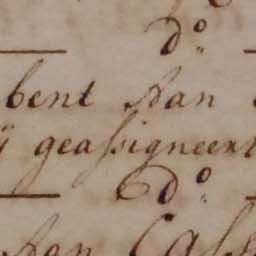 do
bent Aan
ij geassigneert
do
Aen Cass